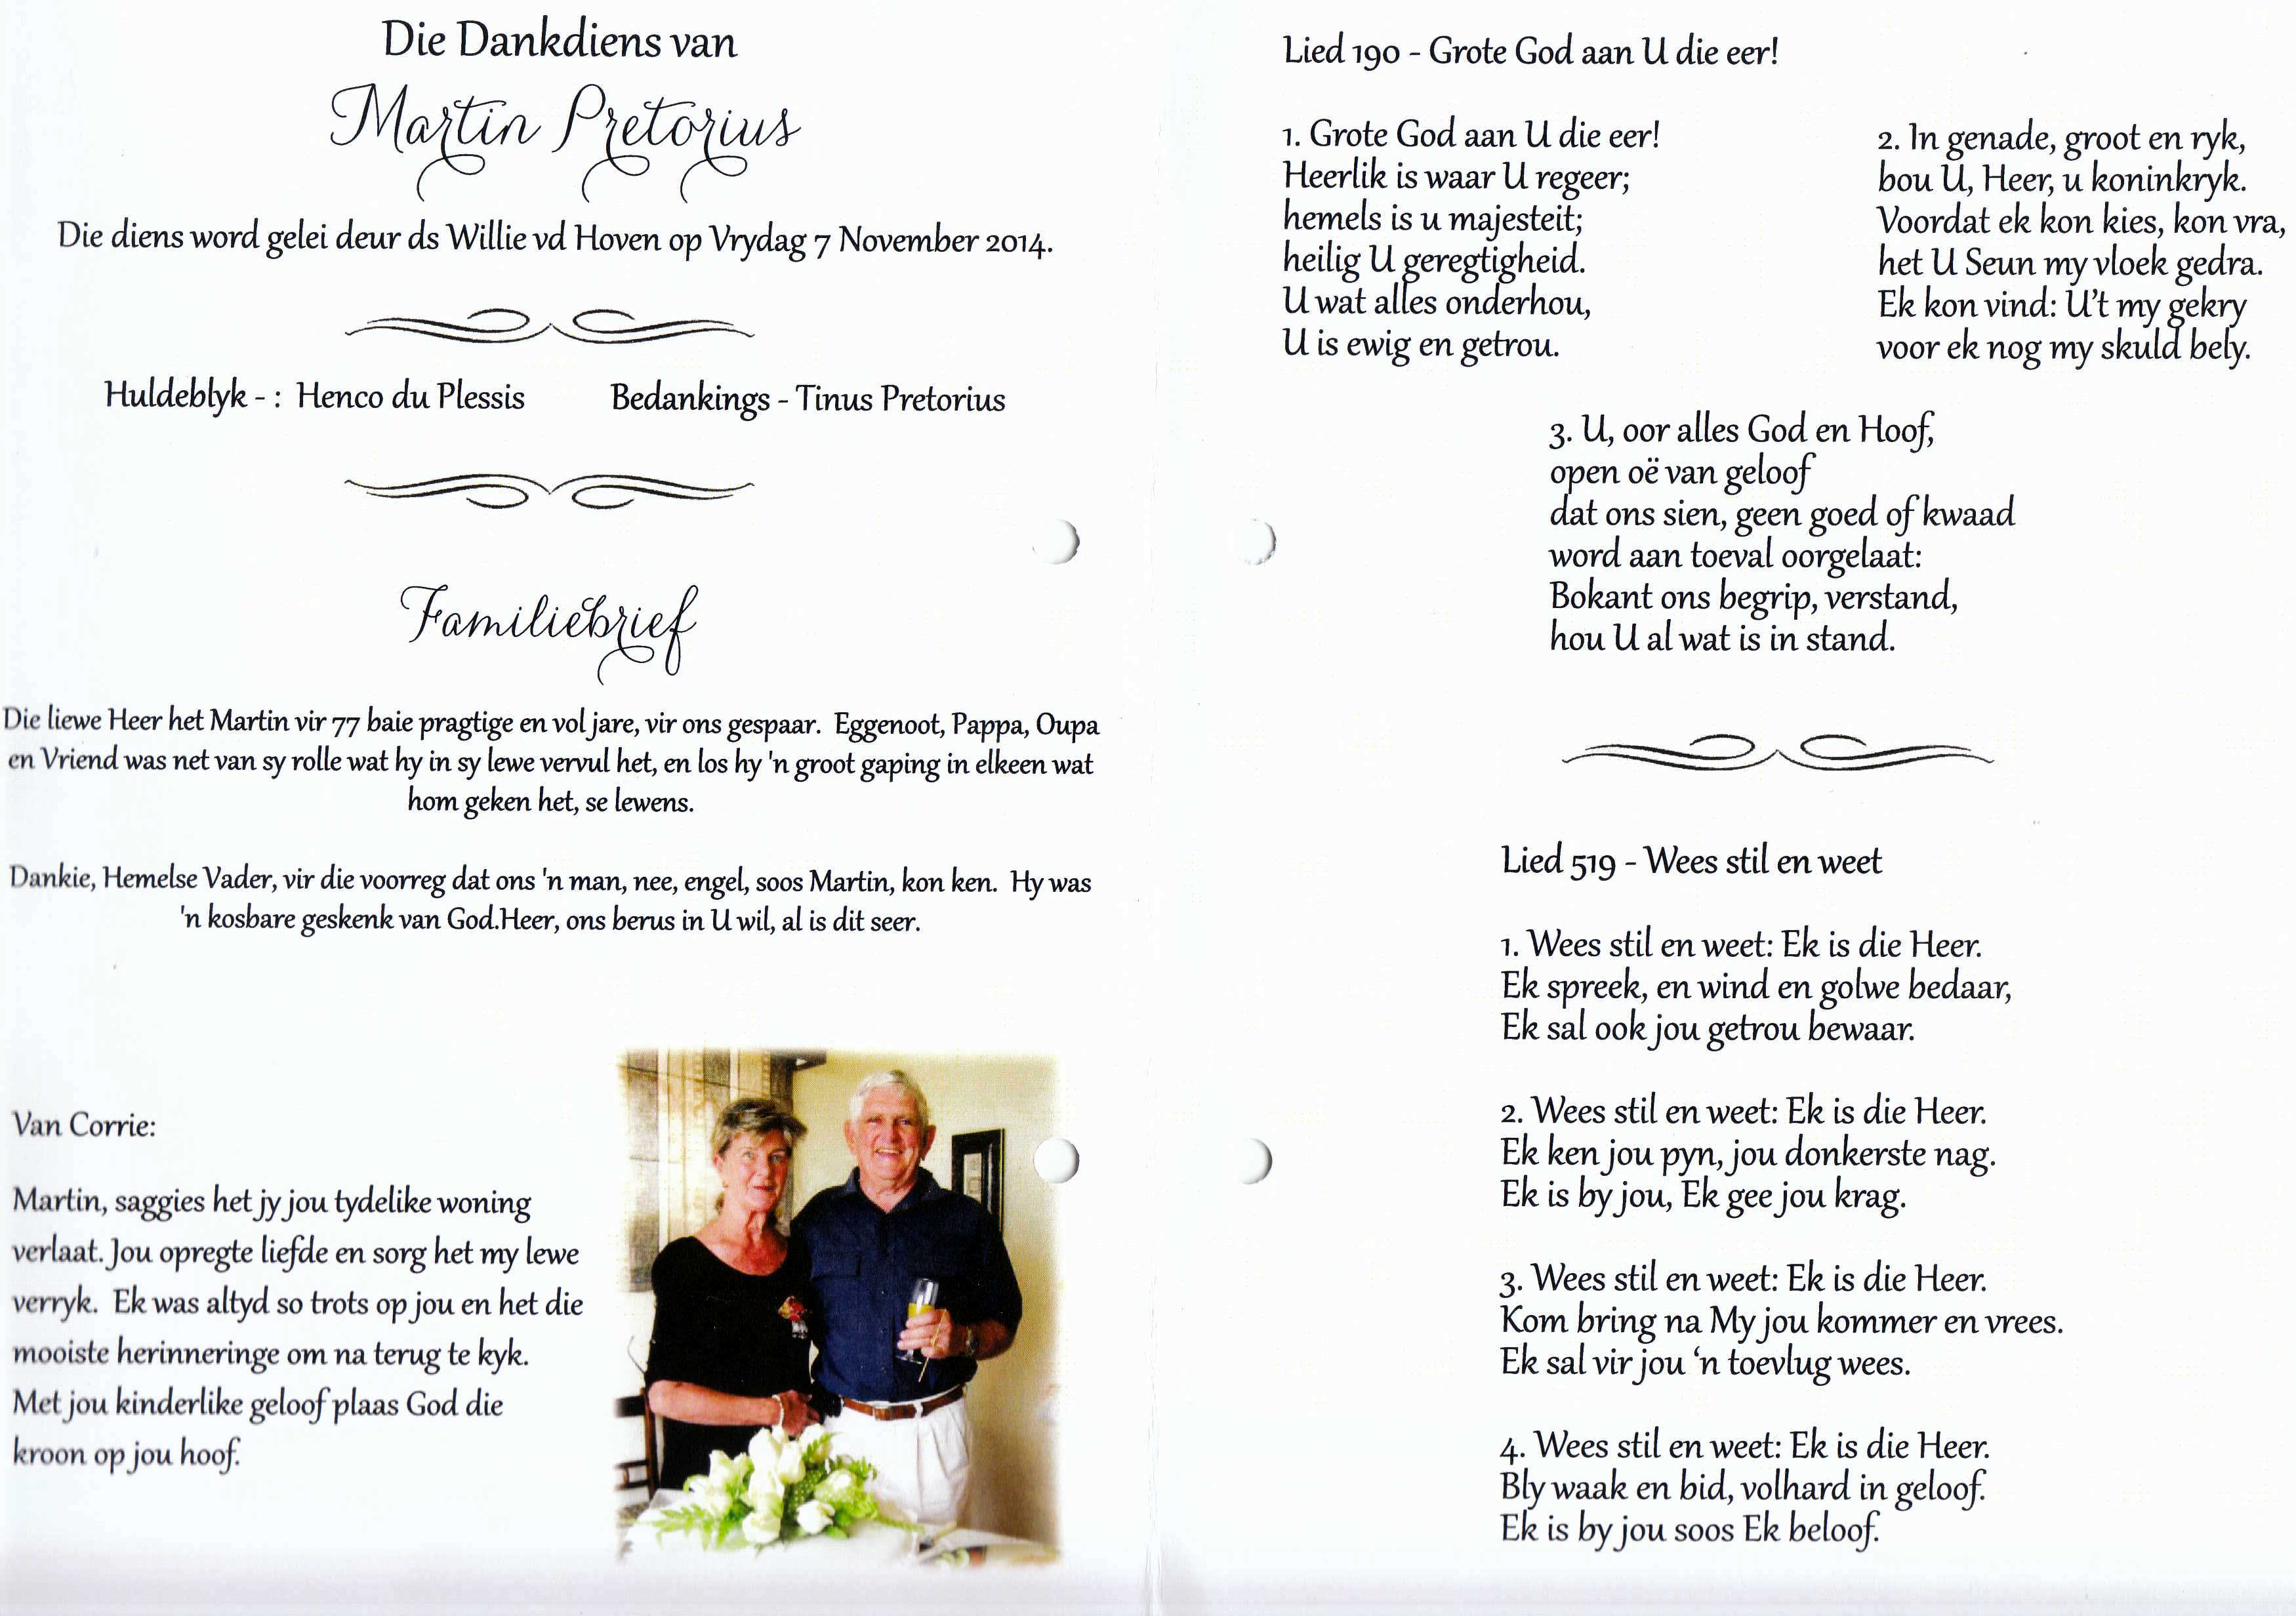 Die Dankdiens van
Martin Pretorius
Die diens word gelei deur ds Willie vd Hoven op Vrydag 7 November 2014.
Huldeblyk - : Henco du Plessis
Bedankings - Tinus Pretorius
Familiebrief
Die liewe Heer het Martin vir 77 baie pragtige en vol jare, vir ons gespaar. Eggenoot, Pappa, Oupa
en Vriend was net van sy rolle wat hy in sy lewe vervul het, en los hy 'n groot gaping in elkeen wat
hom geken het, se lewens.
Dankie, Hemelse Vader, vir die voorreg dat ons 'n man, nee, engel, soos Martin, kon ken. Hy was
'n kosbare geskenk van God.Heer, ons berus in U wil, al is dit seer.
Van Corrie:
Martin, saggies het jy jou tydelike woning
verlaat. Jou opregte liefde en sorg het my lewe
verryk. Ek was altyd so trots op jou en het die
mooiste herinneringe om na terug te kyk.
Met jou kinderlike geloof plaas God die
kroon op jou hoof.
Lied 190 - Grote God aan U die eer!
1. Grote God aan U die eer!
Heerlik is waar U regeer;
hemels is u majesteit;
heilig U geregtigheid.
U wat alles onderhou,
U is ewig en getrou.
2. In genade, groot en ryk,
bou U, Heer, u koninkryk.
Voordat ek kon kies, kon vra,
het U Seun my vloek gedra.
Ek kon vind: U't my gekry
voor ek nog my skuld bely.
3. U, oor alles God en Hoof,
open oë van geloof
dat ons sien, geen goed of kwaad
word aan toeval oorgelaat:
Bokant ons begrip, verstand,
hou U al wat is in stand.
Lied 519 - Wees stil en weet
1. Wees stil en weet: Ek is die Heer.
Ek spreek, en wind en golwe bedaar,
Ek sal ook jou getrou bewaar.
2. Wees stil en weet: Ek is die Heer.
Ek ken jou pyn, jou donkerste nag.
Ek is by jou, Ek gee jou krag.
3. Wees stil en weet: Ek is die Heer.
Kom bring na My jou kommer en vrees.
Ek sal vir jou ‘n toevlug wees.
4. Wees stil en weet: Ek is die Heer.
Bly waak en bid, volhard in geloof.
Ek is by jou soos Ek beloof.